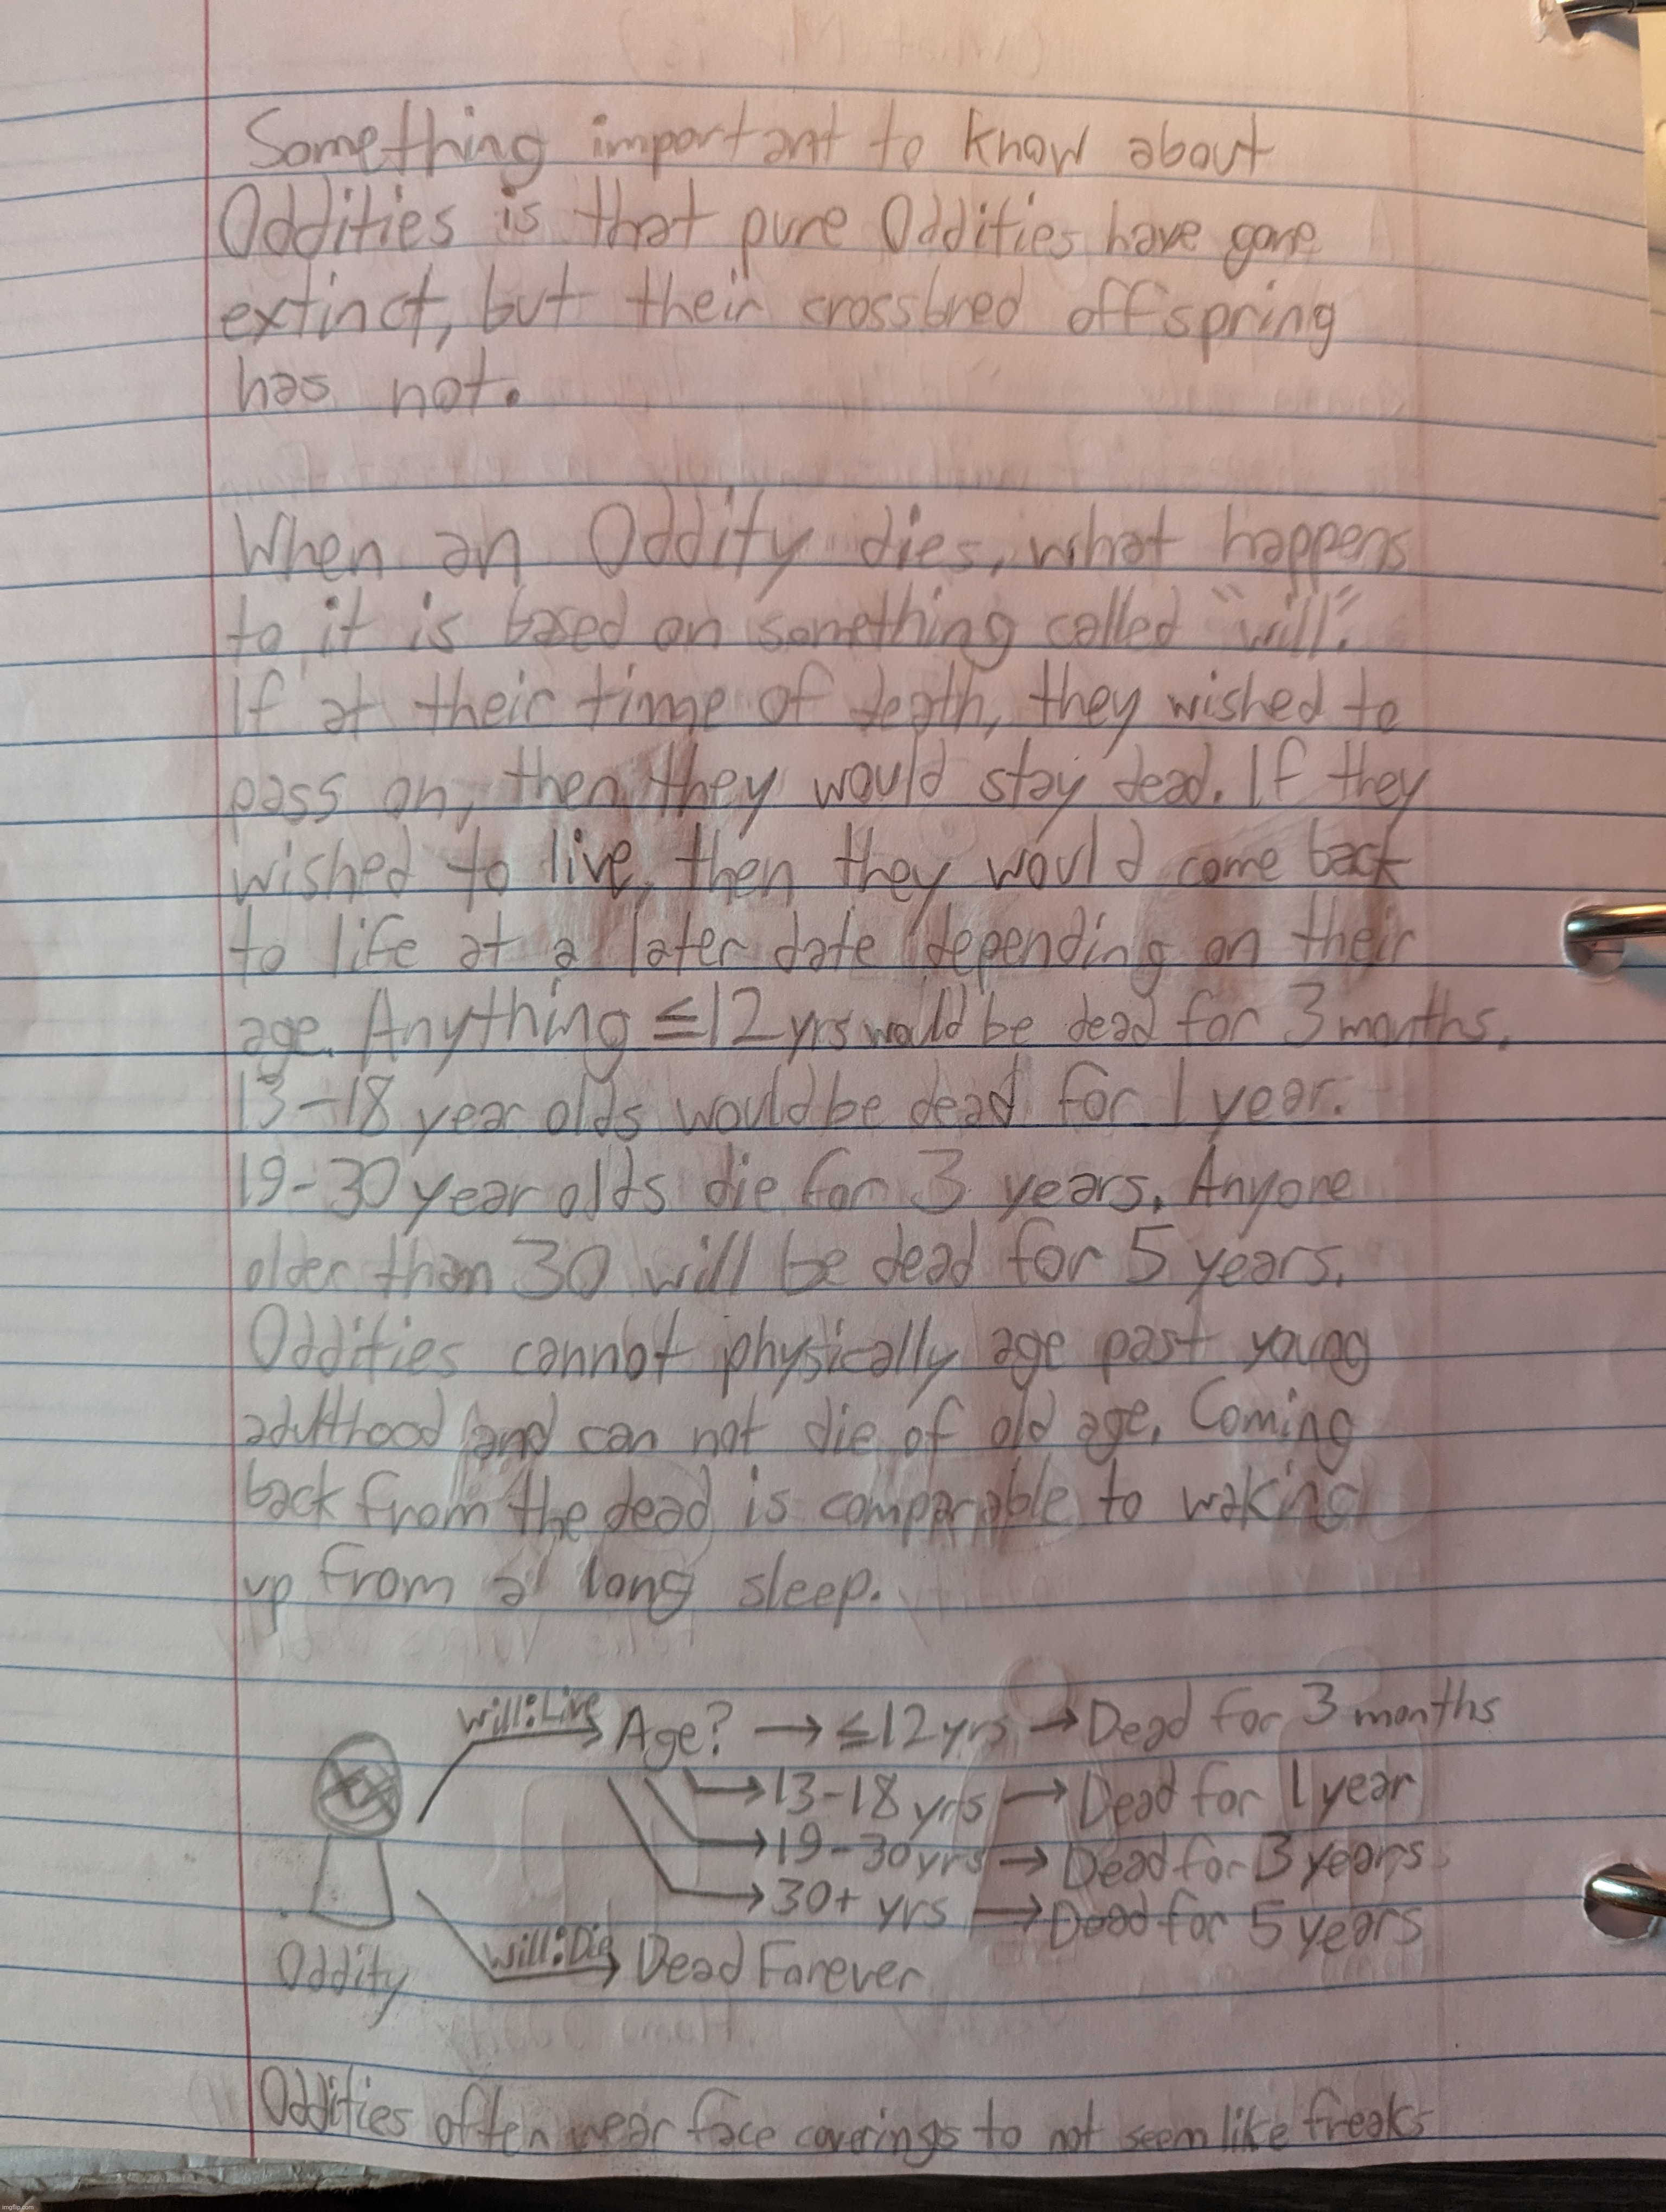 Something important to know about
Oddities is that pure Oddities have gone
extinct, but their crossbred offspring
has not.
When an Oddity dies, what happens
to it is based on something called "will".
If at their time of death, they wished to
pass on, then they would stay dead. If they
wished to live, then they would come back
to life at a later date depending on their
age. Anything ≤12 yrs would be dead for 3 months.
13-18 year olds would be dead for 1 year.
19-30 year olds die for 3 years. Anyone
older than 30 will be dead for 5 years.
Oddities cannot physically age past young
adulthood and can not die of old age. Coming
back from the dead is comparable to waking
up from a long sleep.
Will:Live Age? → ≤12 yrs → Dead for 3 months
→ 13-18 yrs → Dead for 1 year
→ 19-30 yrs → Dead for 3 years
→ 30+ yrs → Dead for 5 years
Will:Die Dead Forever
Oddity
Oddities often wear face coverings to not seem like freaks
imgflip.com